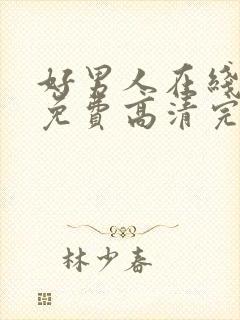 好男人在线
免费高清完
林少春